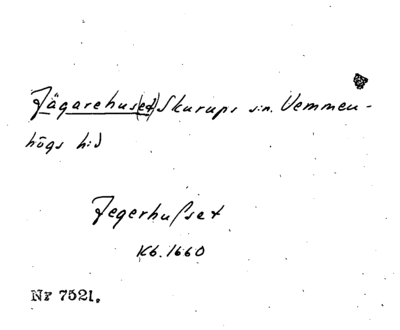 Jägarehus(et) Skurups s:n. Vemmen-
högs h:d
Jegerhuſset
Kb. 1660
Nr 7521.